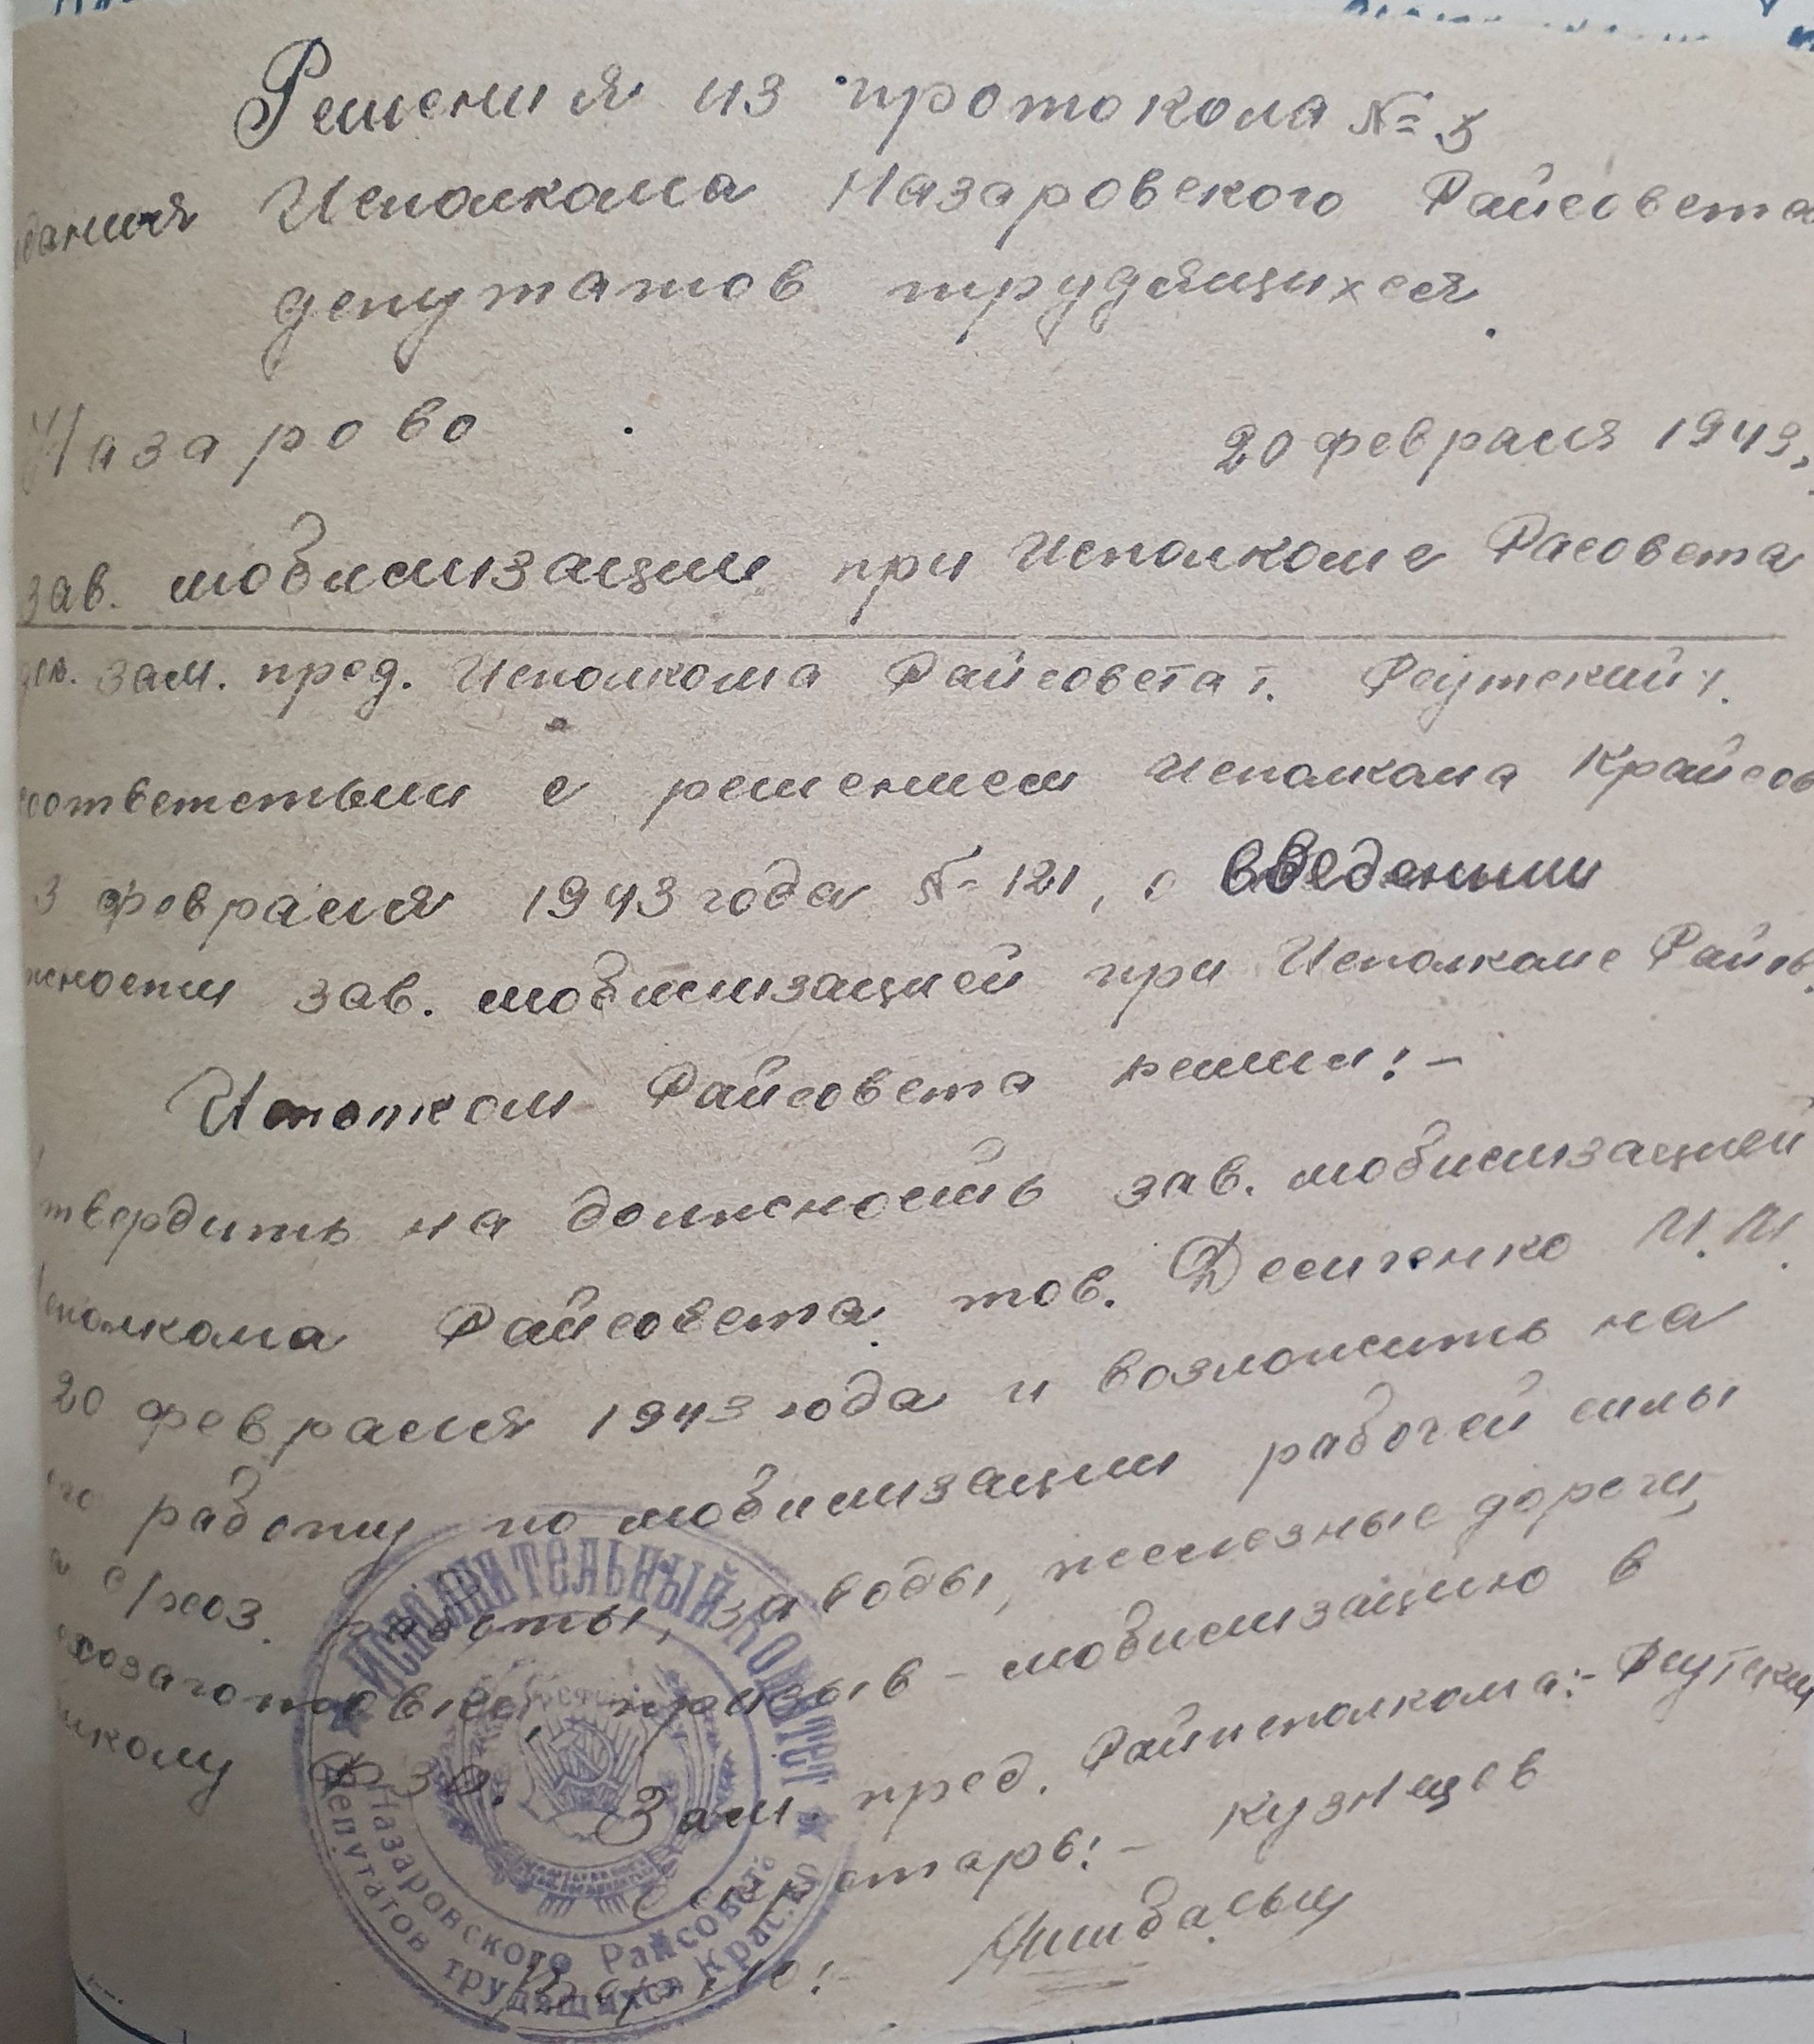 Решения из протокола № 5
дания Исполкома Назаровского Райсовета
депутатов трудящихся.
Назарово 20 февраля 1943.
зав. мобилизации при Исполкоме Расовета
зам. пред. Исполкома Райсовета т. Реутский т.
соответствии с решением исполкома Крайсов
3 февраля 1943 года № 121, о введении
жности зав. мобилизацией при Исполкоме Райсов.
Исполком Райсовета решил: -
твердить на должность зав. мобилизацией
сполкома Райсовета тов. Демиченко И.И.
20 февраля 1943 года и возложить на
его работу по мобилизации рабочей силы
а с/хоз. работы, заводы, железные дороги,
хозаготовки, призыв - мобилизацию в
школу ФЗО.
Зам. пред. Райисполкома: - Реутский
Секретарь: - Кузнецов
Верно: -
Исполнительный Комитет
Назаровского Райсовета
Депутатов трудящихся Крас. Кр